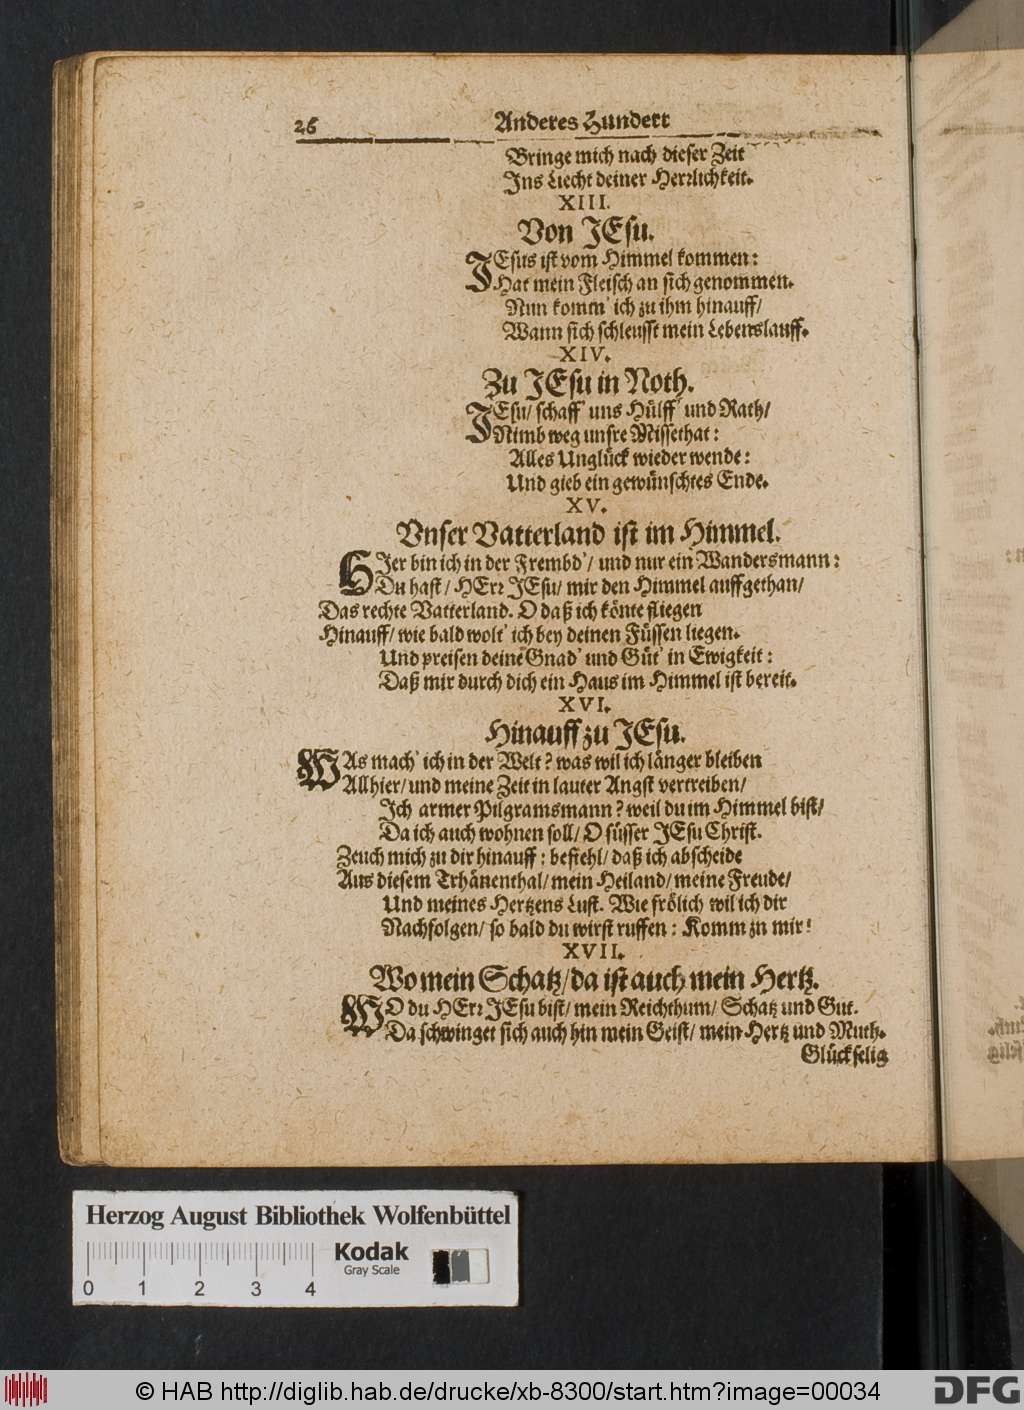 26 Anderes Hundert
Bringe mich nach dieser Zeit
Ins Liecht deiner Herrlichkeit.
XIII.
Von JEsu.
JEsus ist vom Himmel kommen:
Hat mein Fleisch an sich genommen.
Nun komm' ich zu ihm hinauff/
Wann sich schleusst mein Lebenslauff.
XIV.
Zu JEsu in Noth.
JEsu/ schaff' uns Hülff' und Rath/
Nimb weg unsre Missethat:
Alles Unglück wieder wende:
Und gieb ein gewünschtes Ende.
XV.
Vnser Vatterland ist im Himmel.
HIer bin ich in der Frembd'/ und nur ein Wandersmann:
Du hast/ HErr JEsu/ mir den Himmel auffgethan/
Das rechte Vatterland. O daß ich könte fliegen
Hinauff/ wie bald wolt' ich bey deinen Füssen liegen.
Und preisen deine Gnad' und Güt' in Ewigkeit:
Daß mir durch dich ein Haus im Himmel ist bereit.
XVI.
Hinauff zu JEsu.
WAs mach' ich in der Welt? was wil ich länger bleiben
Allhier/ und meine Zeit in lauter Angst vertreiben/
Ich armer Pilgramsmann? weil du im Himmel bist/
Da ich auch wohnen soll/ O süsser JEsu Christ.
Zeuch mich zu dir hinauff: befiehl/ daß ich abscheide
Aus diesem Trhänenthal/ mein Heiland/ meine Freude/
Und meines Hertzens Lust. Wie frölich wil ich dir
Nachfolgen/ so bald du wirst ruffen: Komm zu mir!
XVII.
Wo mein Schatz/ da ist auch mein Hertz.
WO du HErr JEsu bist/ mein Reichthum/ Schatz und Gut.
Da schwinget sich auch hin mein Geist/ mein Hertz und Muth.
Glückselig
Herzog August Bibliothek Wolfenbüttel
Kodak
Gray Scale
0 1 2 3 4
© HAB http://diglib.hab.de/drucke/xb-8300/start.htm?image=00034
DFG